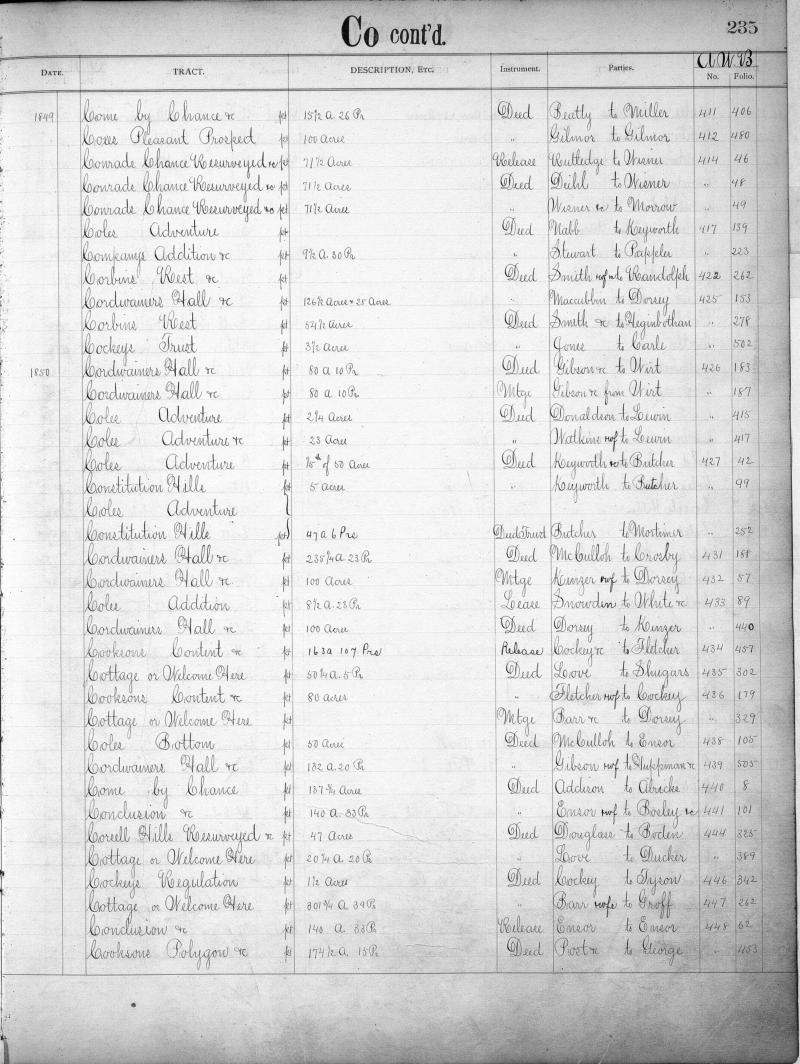 Co cont'd.
235
A.W.B
DATE. TRACT. DESCRIPTION, ETC. Instrument. Parties. No. Folio.
1849 Come by Chance &c pt 15 1/2 a. 26 Ps Deed Beatty to Miller 411 406
Coxes Pleasant Prospect pt 100 Acres " Gilmor to Gilmor 412 480
Conrads Chance Resurveyed &c pt 71 1/2 Acres Release Rutledge to Wisner 414 46
Conrads Chance Resurveyed &c pt 71 1/2 Acres Deed Deihl to Wisner " 48
Conrads Chance Resurveyed &c pt 71 1/2 Acres " Wisner &c to Morrow " 49
Coles Adventure pt Deed Nabb to Keyworth 417 139
Companys Addition &c pt 9 1/2 A. 30 Ps " Stewart to Pappler " 223
Corbins Rest &c pt Deed Smith wf to Randolph 422 262
Cordwainers Hall &c pt 126 1/2 Acres & 25 Acres " Maccubbin to Dorsey 425 153
Corbins Rest pt 54 1/2 Acres Deed Smith &c to Heginbothan " 278
Cockeys Trust pt 3 1/2 Acres " Jones to Carle " 502
1850 Cordwainers Hall &c pt 80 a 10 Ps Deed Gibson &c to Wirt 426 183
Cordwainers Hall &c pt 80 a 10 Ps Mtge Gibson &c from Wirt " 187
Coles Adventure pt 2 1/4 Acres Deed Donaldson to Lewin " 415
Coles Adventure &c pt 23 Acres " Watkins wf to Lewin " 417
Coles Adventure pt 1/5th of 50 Acres Deed Keyworth to Butcher 427 42
Constitution Hills pt 5 acres " Keyworth to Butcher " 99
Coles Adventure
Constitution Hills pt 47 a 6 Prs Deed Trust Butcher to Mortimer " 252
Cordwainers Hall &c pt 235 1/4 a. 23 Ps Deed McCulloh to Crosby 431 188
Cordwainers Hall &c pt 100 Acres Mtge Kinzer wf to Dorsey 432 57
Coles Addition pt 8 1/2 a. 23 Ps Lease Snowden to White &c 433 89
Cordwainers Hall &c pt 100 Acres Deed Dorsey to Kinzer " 440
Cooksons Content &c pt 163 a 107 Prs Release Cockey &c to Fletcher 434 457
Cottage or Welcome Here pt 50 1/4 a. 5 Ps Deed Love to Shugars 435 302
Cooksons Content &c pt 80 acres " Fletcher wf to Cockey 436 179
Cottage or Welcome Here pt Mtge Barr &c to Dorsey " 329
Coles Bottom pt 50 Acres Deed McCulloh to Ensor 438 105
Cordwainers Hall &c pt 132 a. 20 Ps " Gibson wf to Huppman &c 439 505
Come by Chance pt 137 3/4 Acres Deed Addison to Abricks 440 8
Conclusion &c pt 140 a. 33 Ps " Ensor wf to Bosley &c 441 101
Corsell Hills Resurveyed &c pt 47 Acres Deed Douglass to Boden 444 325
Cottage or Welcome Here pt 20 1/4 A. 20 Ps " Love to Ducker " 389
Cockeys Regulation pt 1 1/2 Acres Deed Cockey to Tyson 446 342
Cottage or Welcome Here pt 301 3/4 A 39 Ps " Barr wf to Groff 447 262
Conclusion &c pt 140 a 33 Ps Release Ensor to Ensor 448 62
Cooksons Polygon &c pt 174 1/2 a. 15 Ps Deed Post &c to George " 453